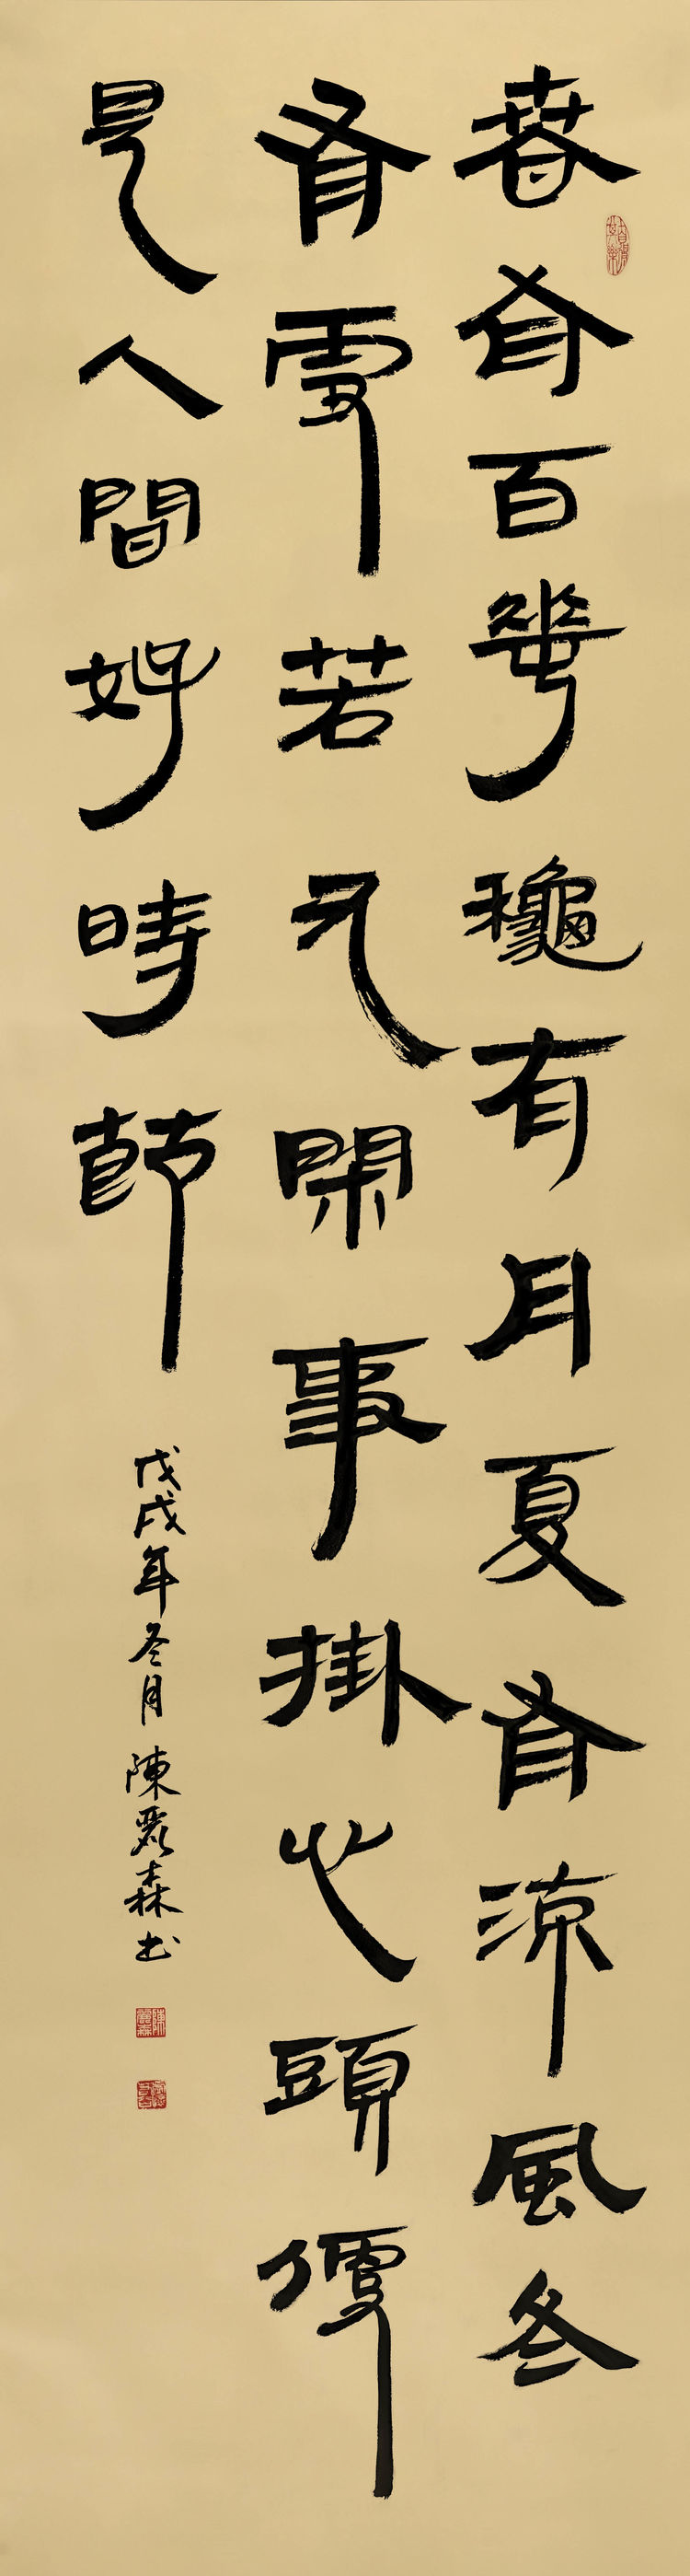 春有百華龝有月夏有涼風冬
有雪若无閑事掛心頭便
是人間好時節
戊戌年冬月陳麗森书